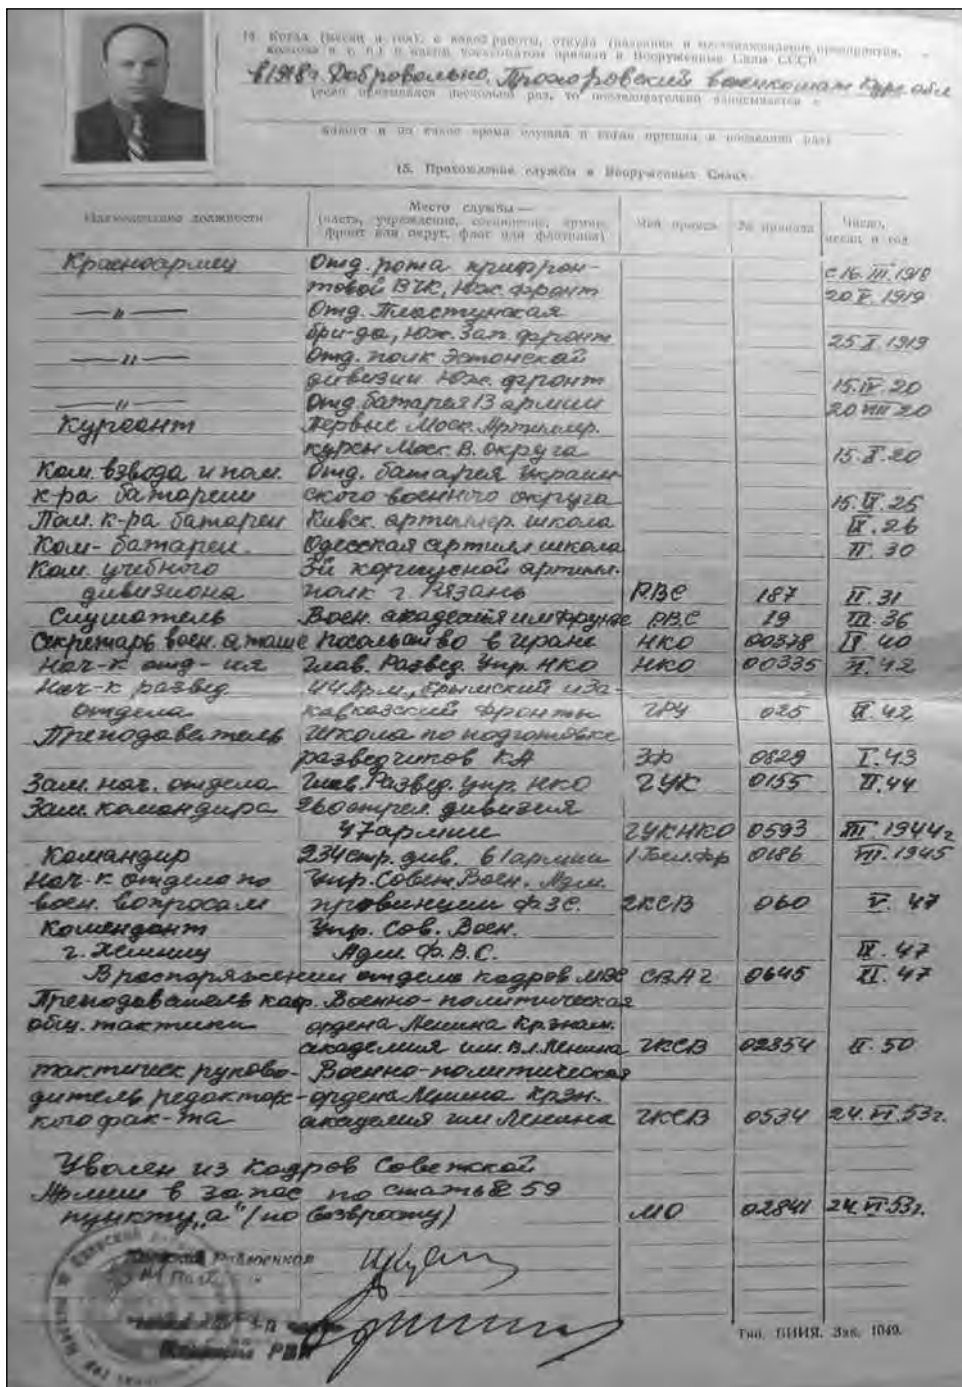 14. Когда (месяц и год), с какой работы, откуда (название и местонахождение предприятия,
колхоза и т. п.) и каким военкоматом призван в Вооруженные Силы СССР
в 1918 г. Добровольно, Прохоровский военкомат Курс. обл
(если призывался несколько раз, то последовательно записывается с
какого и по какое время служил и когда призван в последний раз)
15. Прохождение службы в Вооруженных Силах
Наименование должности Место службы — (часть, учреждение, соединение, армия, фронт или округ, флот или флотилия) Чей приказ № приказа Число, месяц и год
Красноармеец Отд. рота прифрон-
товой ВЧК, Юж. фронт с 16. III. 1918
20. V. 1919
—"— Отд. Пластунская
бри-да, Юж. Зап. фронт 25. X. 1919
—"— Отд. полк Эстонской
дивизии Юж. фронт 15. IV. 20
—"— Отд. батарея 13 армии 20 VIII 20
Курсант Первые Моск. Артиллер.
курсы Моск. В. округа 15. X. 20
Ком. взвода и пом. Отд. батарея Украин-
к-ра батареи ского военного округа 15. IX. 25
Пом. к-ра батареи Киевск. артиллер. школа IX. 26
Ком- батареи. Одесская артилл школа 30
Ком. учебного 3й корпусной артилл.
дивизиона полк г. Рязань РВС 187 II. 31
Слушатель Воен. академия им Фрунзе РВС 19 III. 36
Секретарь воен. аташе Посольство в Иране НКО 00378 40
Нач-к отд- ия Глав. Развед. Упр. НКО НКО 00335 42
Нач-к развед. 44 Арм., Крымский и За-
отдела кавказский фронты ГРУ 025 42
Преподаватель Школа по подготовке
разведчиков КА ЗФ 0829 I. 43
Зам. нач. отдела Глав. Развед. Упр. НКО ГУК 0155 II. 44
Зам. командира стрел. дивизия
47 армии ГУКНКО 0593 III 1944г
Командир 234 стр. див. 61 армии 1 Бел. Фр 0186 VII. 1945
Нач-к отдела по Упр. Совет. Воен. Адм.
воен. вопросам провинции ФЗС. ГКСВ 060 V. 47
Комендант Упр. Сов. Воен.
г. Хемниц Адм. Ф. В. С. IX. 47
В распоряжении отдела кадров СВАГ 0645 XI. 47
Преподаватель каф. Военно-политическая
общ. тактики ордена Ленина Кр. знам.
академия им. В.И. Ленина ГКСВ 02854 II. 50
тактическ руково- Военно-политическая
дитель редакторс- ордена Ленина Кр. зн.
кого фак-та академия им Ленина ГКСВ 0534 24. VI. 53г.
Уволен из Кадров Советской
Армии в запас по статье 59
пункту „а" (по возврасту) МО 02841 24. VI. 53г.
Тип. ВИИЯ. Зак. 1049.